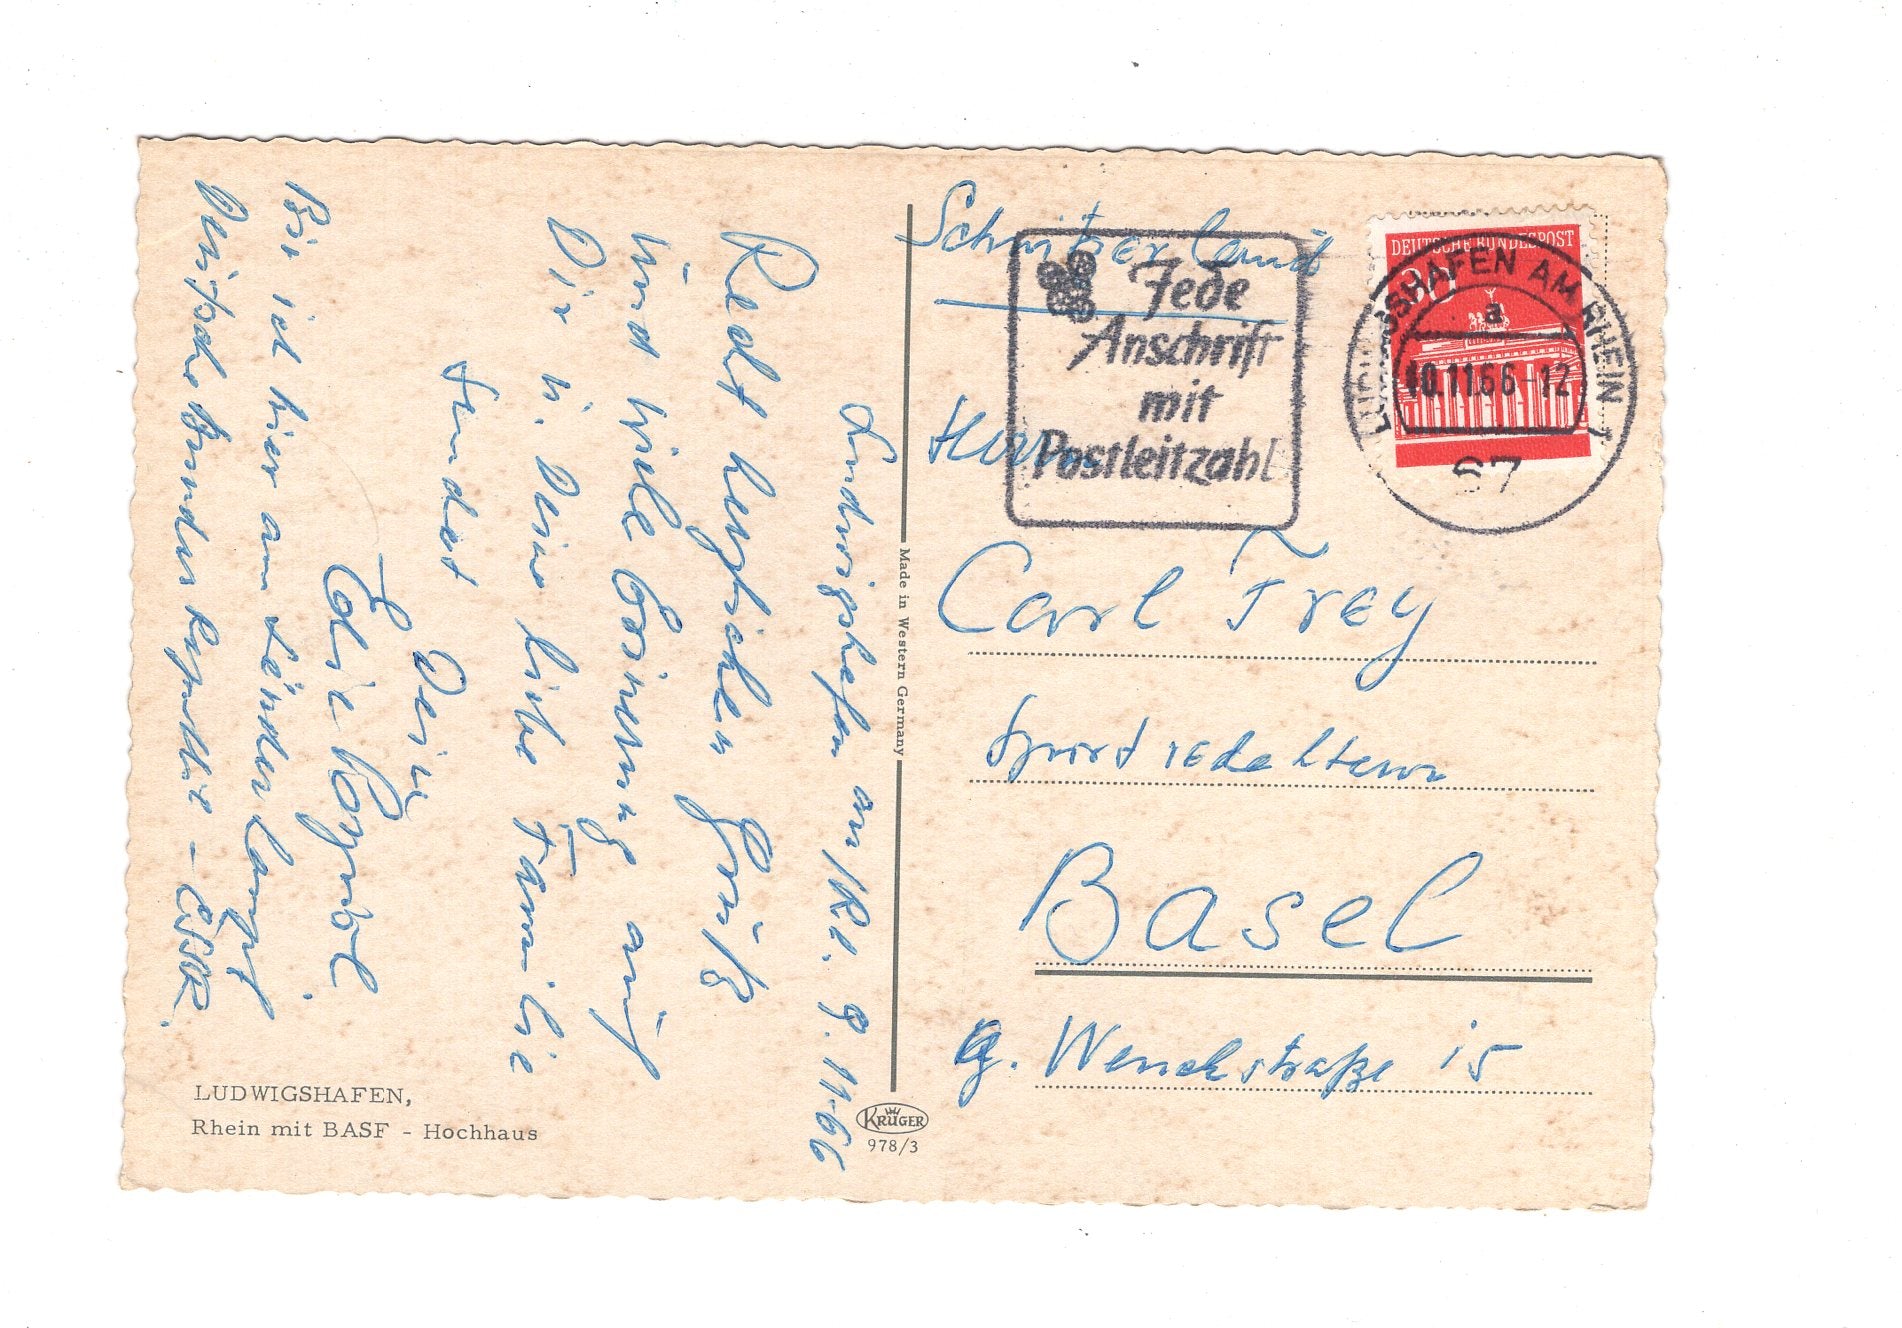 Ludwigshafen am/Rh. 9.11.66
Recht herzlichen Gruß
und viele Erinnerung auf
Dir u. Deine liebe Familie
sendet
Dein
Bin ich hier am Länderkampf
Deutsche Bundes Republik - ČSSR.
LUDWIGSHAFEN,
Rhein mit BASF - Hochhaus
Made in Western Germany
KRÜGER
978/3
Schweizerland
Herrn
Carl Frey
Sportredakteur
Basel
g. Wenckstraße 15
Jede
Anschrift
mit
Postleitzahl
DEUTSCHE BUNDESPOST
30
LUDWIGSHAFEN AM RHEIN 1
a
10.11.66-12
67